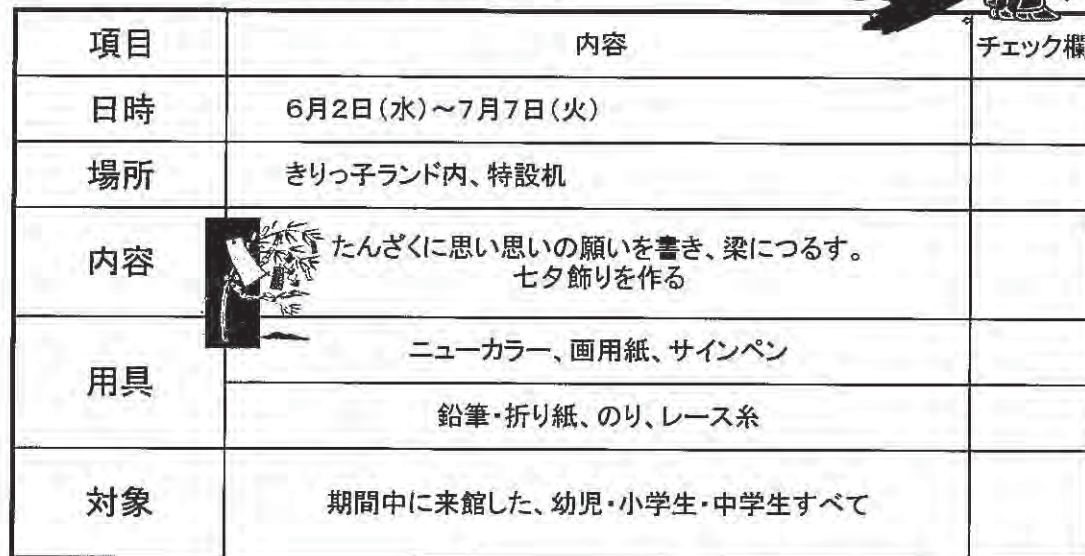 項目 内容 チェック欄
日時 6月2日(水)~7月7日(火)
場所 きりっ子ランド内、特設机
内容 たんざくに思い思いの願いを書き、梁につるす。
七夕飾りを作る
用具 ニューカラー、画用紙、サインペン
鉛筆・折り紙、のり、レース糸
対象 期間中に来館した、幼児・小学生・中学生すべて